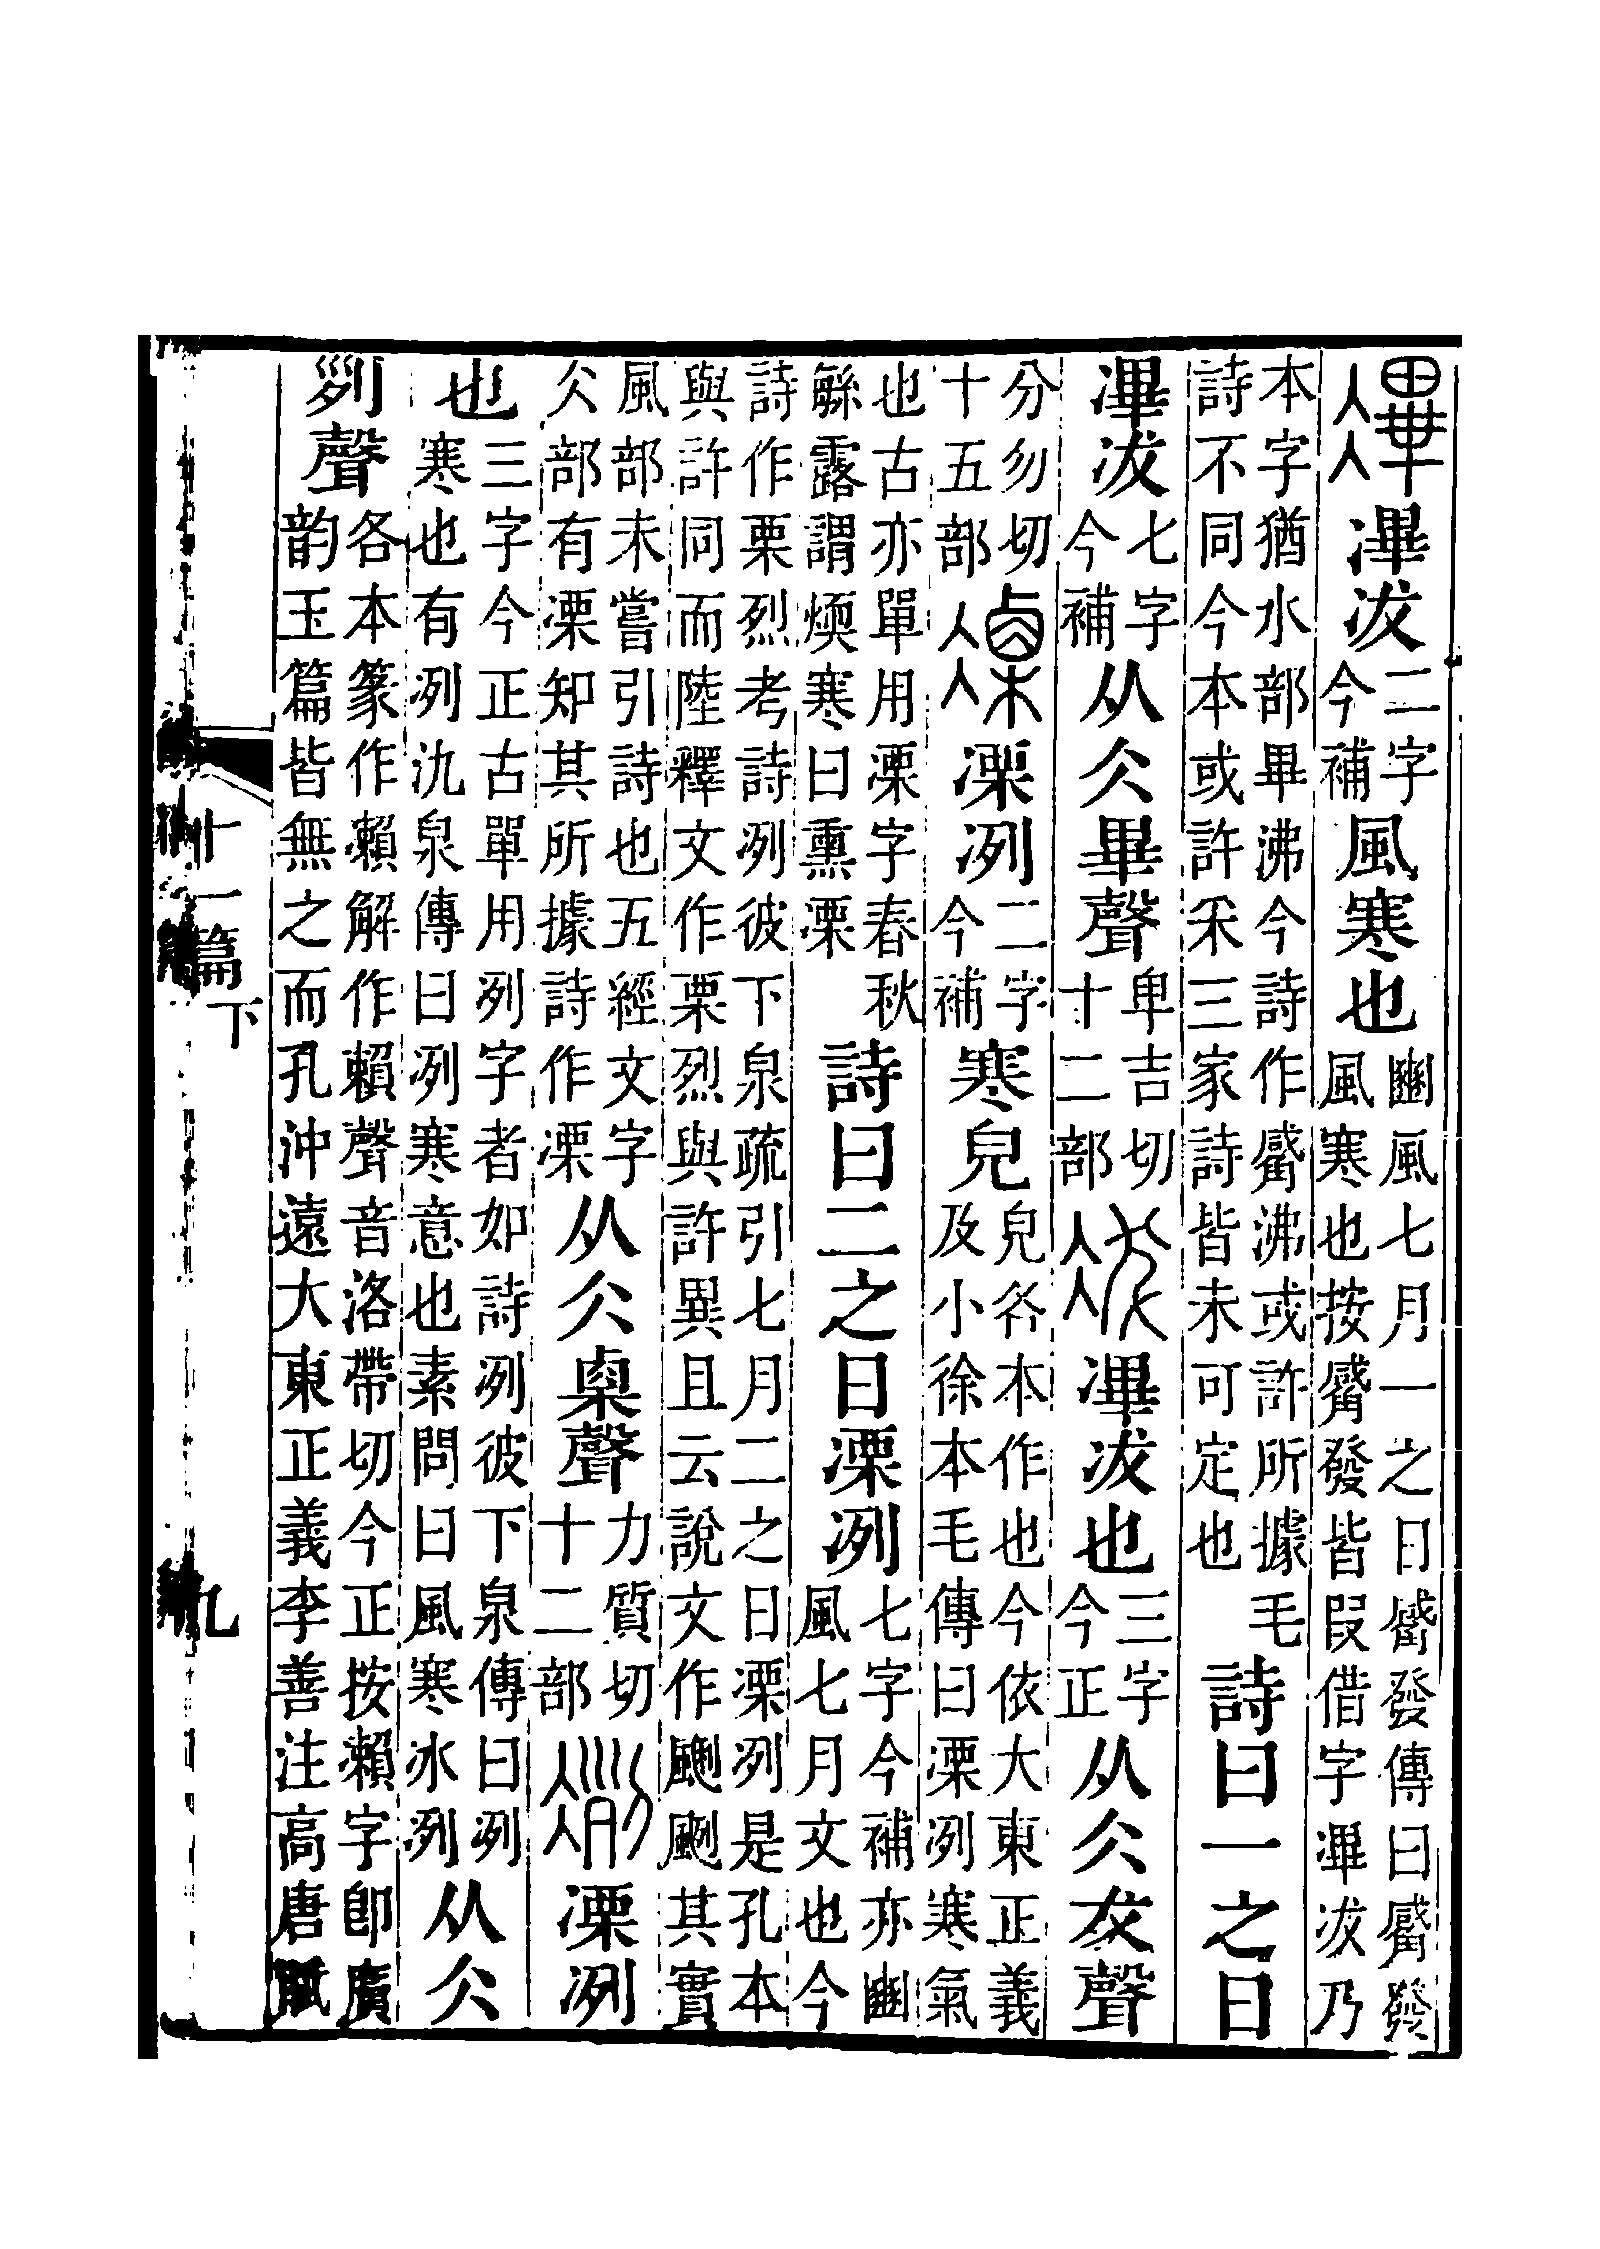 㓖冹二字今補風寒也豳風七月一之日觱發傳曰觱發風寒也按觱發皆叚借字㓖冹乃
本字猶水部畢沸今詩作觱沸或許所據毛詩不同今本或許采三家詩皆未可定也詩曰一之日
㓖冹七字今補从仌畢聲卑吉切十二部㓖冹也三字今正从仌犮聲
分勿切十五部凓冽二字今補寒皃皃各本作也今依大東正義及小徐本毛傳曰凓冽寒氣
也古亦單用凓字春秋緐露謂煗寒曰熏凓詩曰二之日凓冽七字今補亦豳風七月文也今
詩作栗烈考詩冽彼下泉疏引七月二之日凓冽是孔本與許同而陸釋文作栗烈與許異且云說文作颲颲其實
風部未嘗引詩也五經文字仌部有凓知其所據詩作凓从仌㮚聲力質切十二部凓冽
也三字今正古單用冽字者如詩冽彼下泉傳曰冽寒也有冽氿泉傳曰冽寒意也素問曰風寒冰冽从仌
𠛱聲各本篆作瀨解作賴聲音洛帶切今正按瀨字卽廣韵玉篇皆無之而孔沖遠大東正義李善注高唐賦
十一篇下
九